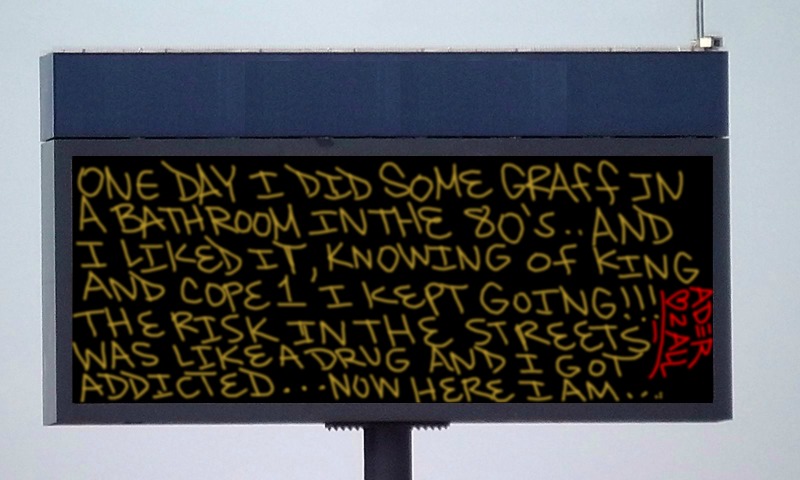 ONE DAY I DID SOME GRAFF IN
A BATHROOM IN THE 80's.. AND
I LIKED IT, KNOWING OF KING
AND COPE 1 I KEPT GOING!!!
THE RISK IN THE STREETS
WAS LIKE A DRUG AND I GOT
ADDICTED...NOW HERE I AM...
ADER
2 ALL